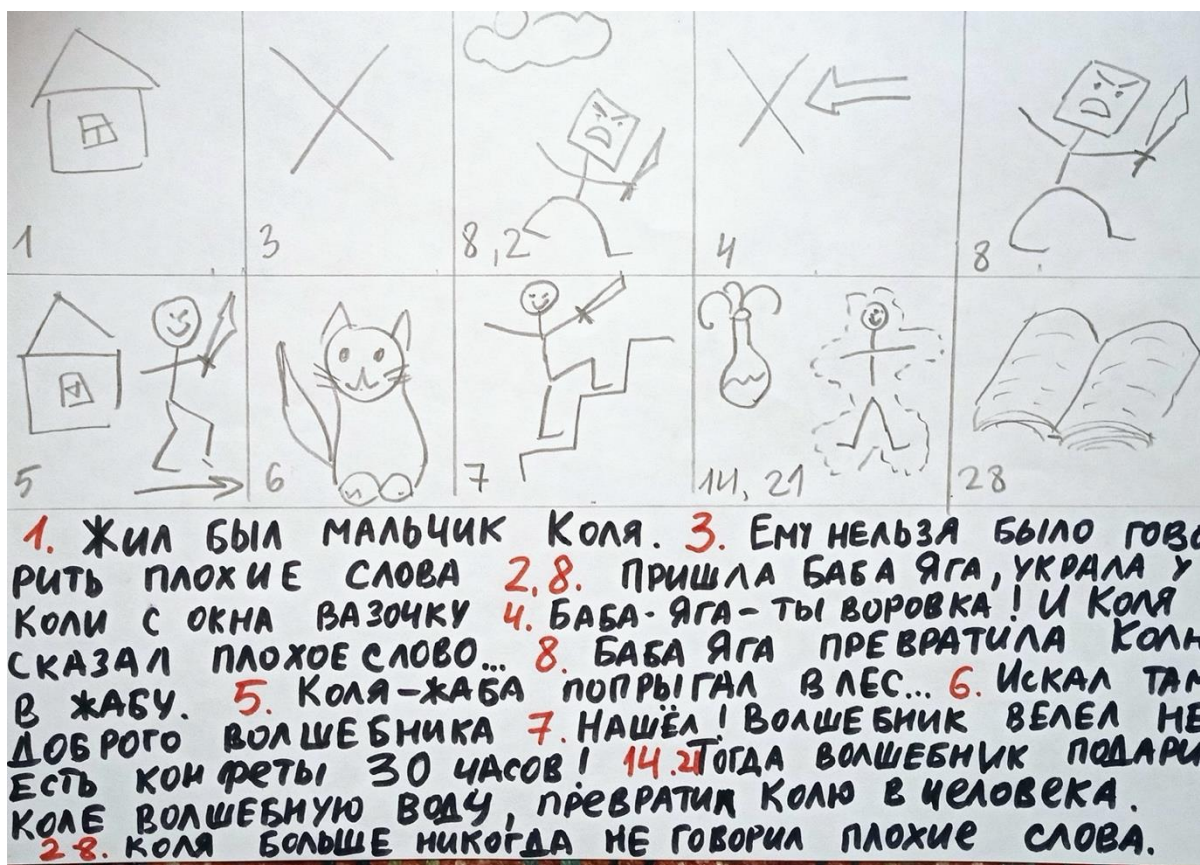 1
3
8,2
4
8
5
6
7
14, 21
28
1. Жил был мальчик Коля. 3. Ему нельзя было гово
рить плохие слова 2,8. Пришла Баба Яга, украла у
Коли с окна вазочку 4. Баба-Яга-ты воровка! И Коля
сказал плохое слово... 8. Баба Яга превратила Колю
в жабу. 5. Коля-жаба попрыгал в лес... 6. Искал там
доброго волшебника 7. Нашёл! Волшебник велел не
есть конфеты 30 часов! 14.21 Тогда волшебник подари
Коле волшебную воду, превратил Колю в человека.
28. Коля больше никогда не говорил плохие слова.